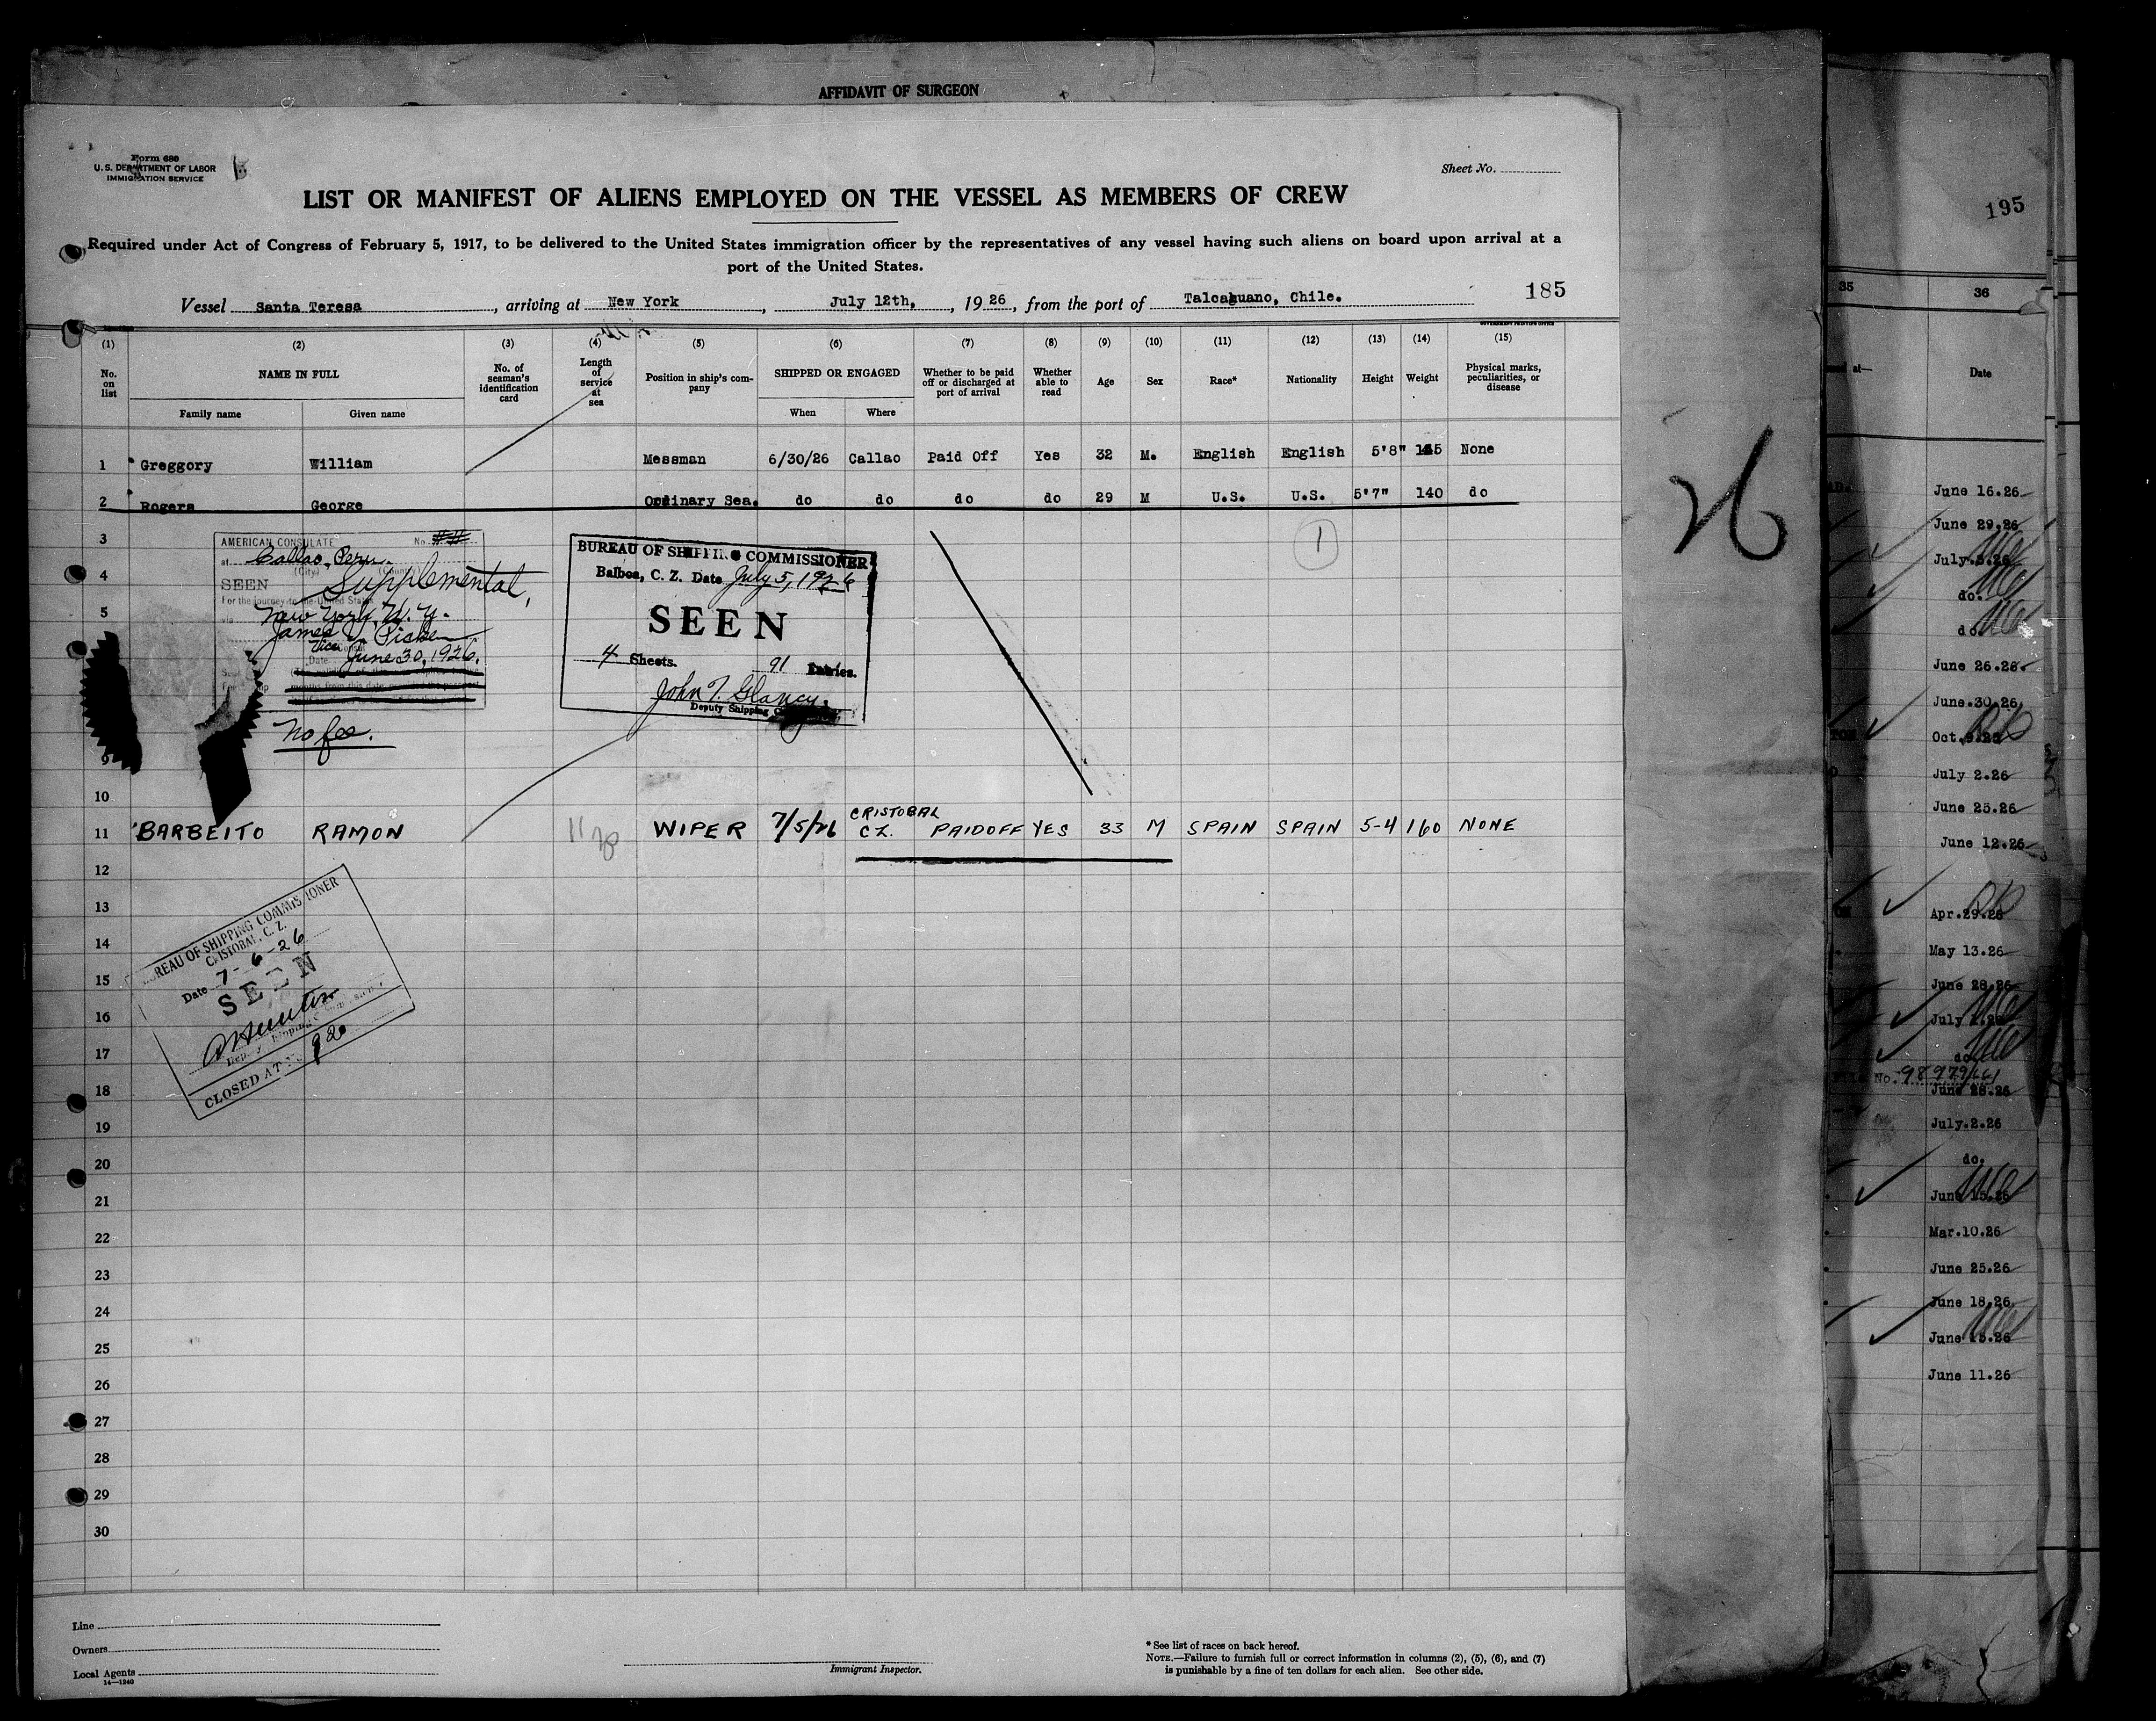 AFFIDAVIT OF SURGEON
Form 680
U. S. DEPARTMENT OF LABOR
IMMIGRATION SERVICE
Sheet No.
LIST OR MANIFEST OF ALIENS EMPLOYED ON THE VESSEL AS MEMBERS OF CREW
Required under Act of Congress of February 5, 1917, to be delivered to the United States immigration officer by the representatives of any vessel having such aliens on board upon arrival at a
port of the United States.
Vessel Santa Teresa, arriving at New York, July 12th, 1926, from the port of Talcahuano, Chile. 185
(1) (2) (3) (4) (5) (6) (7) (8) (9) (10) (11) (12) (13) (14) (15)
No. on list NAME IN FULL No. of seaman's identification card Length of service at sea Position in ship's company SHIPPED OR ENGAGED Whether to be paid off or discharged at port of arrival Whether able to read Age Sex Race* Nationality Height Weight Physical marks, peculiarities, or disease
Family name Given name When Where
1 Greggory William Messman 6/30/26 Callao Paid Off Yes 32 M. English English 5'8" None
2 Rogers George Ordinary Sea. do do do do 29 M U.S. U.S. 5'7" 140 do
3
4
5
AMERICAN CONSULATE No.
at Callao, Peru.
(City) (Country)
SEEN Supplemental,
For the journey to the United States
via New York, N. Y.
James V.
Vice Consul
Date June 30, 1926.
No fee.
BUREAU OF SHIPPING COMMISSIONER
Balboa, C. Z. Date July 5, 1926
SEEN
4 Sheets. 91 Entries.
John T. Glancy.
Deputy Shipping
1
9
10
11 BARBEITO RAMON WIPER 7/5/26 CRISTOBAL CZ. PAID OFF YES 33 M SPAIN SPAIN 5-4 160 NONE
12
13
14
15
16
17
18
19
20
21
22
23
24
25
26
27
28
29
30
BUREAU OF SHIPPING COMMISSIONER
CRISTOBAL, C. Z.
Date 7-6-26
SEEN
Deputy Shipping Commissioner
CLOSED AT No. 92
Line
Owners
Local Agents
14—1240
Immigrant Inspector.
* See list of races on back hereof.
NOTE.—Failure to furnish full or correct information in columns (2), (5), (6), and (7)
is punishable by a fine of ten dollars for each alien. See other side.
26
195
35 36
Date
June 16.26
June 29.26
July.5.26
do.
do
June 26.26.
June.30.26
Oct.9.25
July 2.26
June 25.26
June 12.26
Apr.29.26
May 13.26
June 28.26
July 1.26
do.
No. 98979/
June 28.26
July.2.26
do.
June 15.26
Mar.10.26
June 25.26
June 18.26
June 15.26
June 11.26